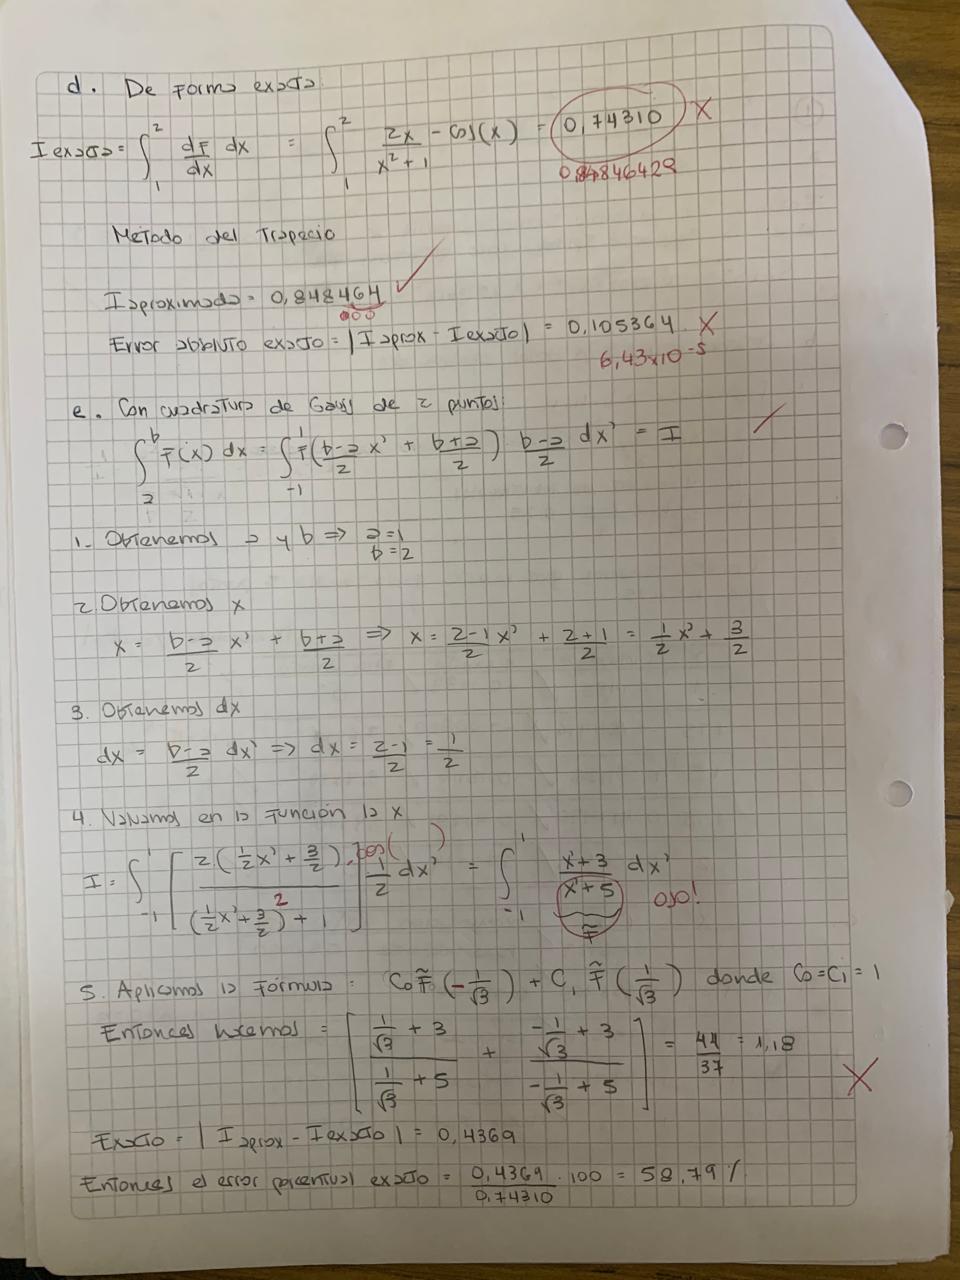 d. De forma exacta.
I exacta = ∫₁² df/dx dx = ∫₁² 2x/(x²+1) - cos(x) = 0,74310 X
0,84846429
Método del Trapecio
I aproximada = 0,848464 ✓
000
Error absoluto exacto = |I aprox - I exacto| = 0,105364 X
6,43x10⁻⁵
e. Con cuadratura de Gauss de 2 puntos:
∫ₐᵇ f(x) dx = ∫₋₁¹ f((b-a)/2 x' + (b+a)/2) (b-a)/2 dx' = I
1- Obtenemos a y b ⇒ a=1
b=2
2. Obtenemos x
x = (b-a)/2 x' + (b+a)/2 ⇒ x = (2-1)/2 x' + (2+1)/2 = 1/2 x' + 3/2
3. Obtenemos dx
dx = (b-a)/2 dx' ⇒ dx = (2-1)/2 = 1/2
4. Valuamos en la función la x
I = ∫₋₁¹ [2(1/2 x' + 3/2) / ((1/2 x' + 3/2)² + 1) - cos( )] 1/2 dx' = ∫₋₁¹ (x'+3)/(x'+5) dx' ojo!
f̃
5. Aplicamos la fórmula: C₀ f̃(-1/√3) + C₁ f̃(1/√3) donde C₀=C₁=1
Entonces hacemos = [(1/√3 + 3)/(1/√3 + 5) + (-1/√3 + 3)/(-1/√3 + 5)] = 44/37 = 1,18
X
Exacto = |I aprox - I exacto| = 0,4369
Entonces el error porcentual exacto = 0,4369/0,74310 · 100 = 58,79 %